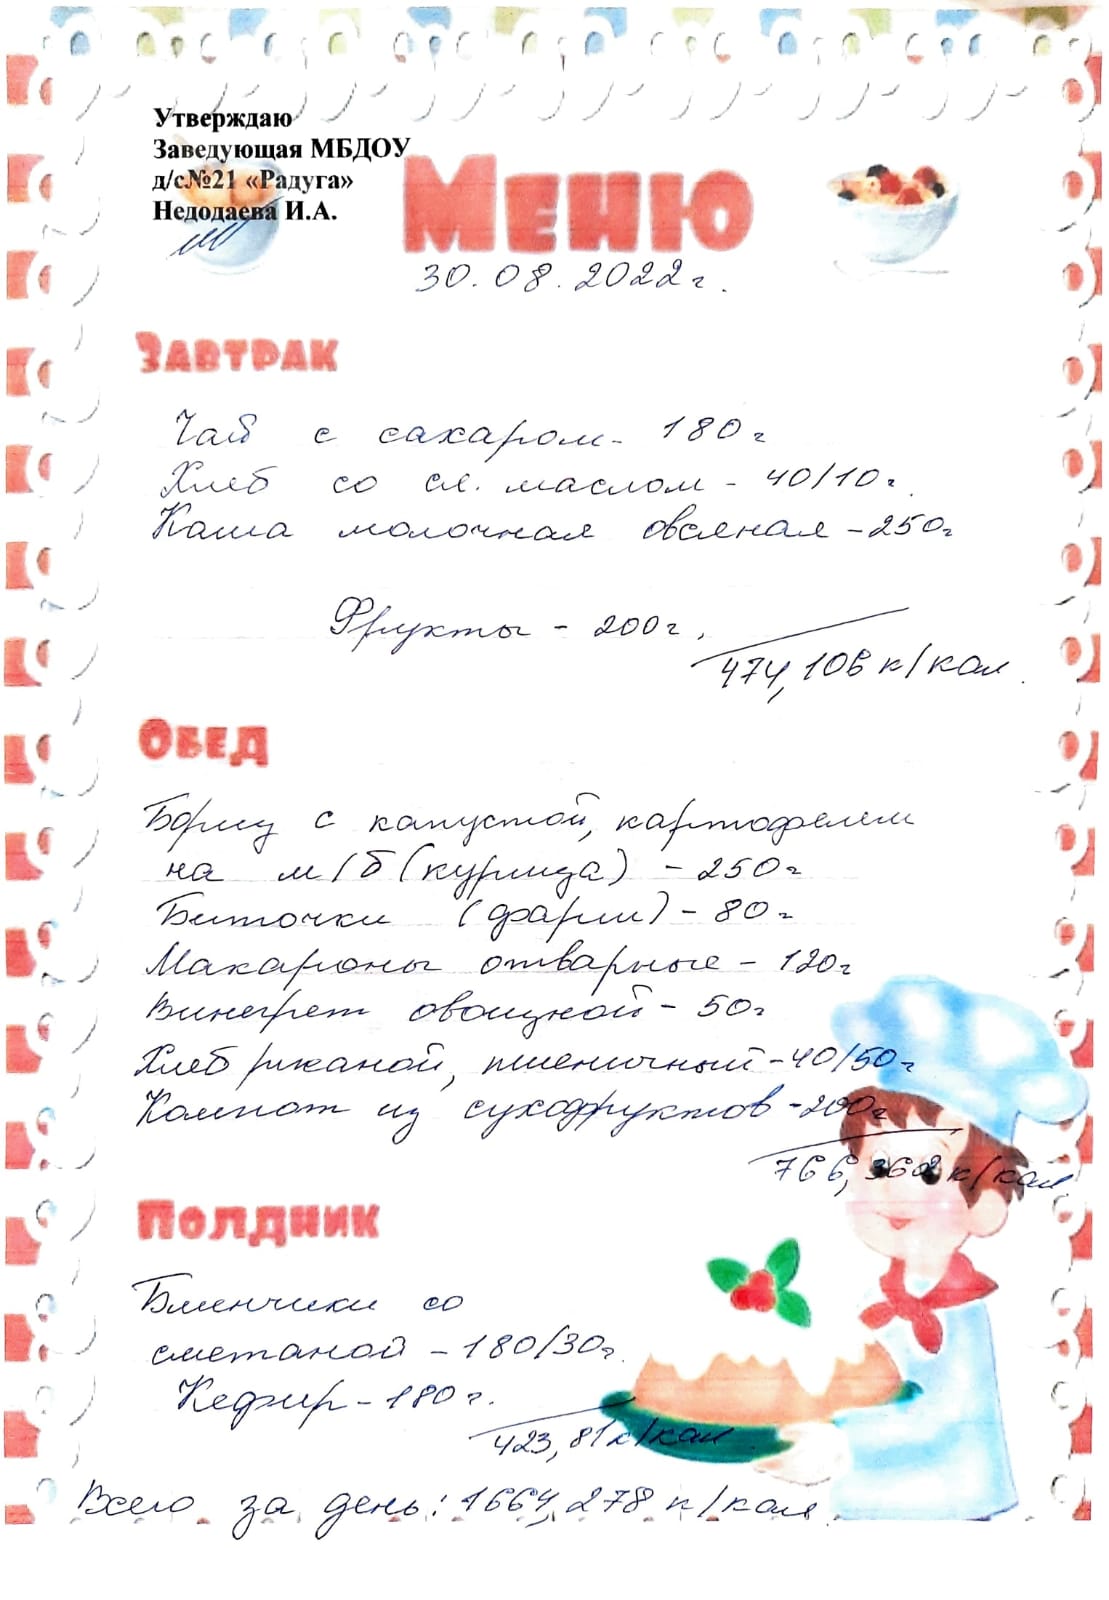 Утверждаю
Заведующая МБДОУ
д/с№21 «Радуга»
Недодаева И.А.
Меню
30.08.2022г.
Завтрак
Чай с сахаром - 180г
Хлеб со сл. маслом - 40/10г.
Каша молочная овсяная - 250г
Фрукты - 200г.
474,106 к/кал.
Обед
Борщ с капустой, картофелем
на м/б (курица) - 250г
Биточки (фарш) - 80г
Макароны отварные - 120г
Винегрет овощной - 50г
Хлеб ржаной, пшеничный - 40/50г
Компот из сухофруктов - 200г
766,362 к/кал.
Полдник
Блинчики со
сметаной - 180/30г.
Кефир - 180г.
423,81 к/кал.
Всего за день: 1664,278 к/кал.